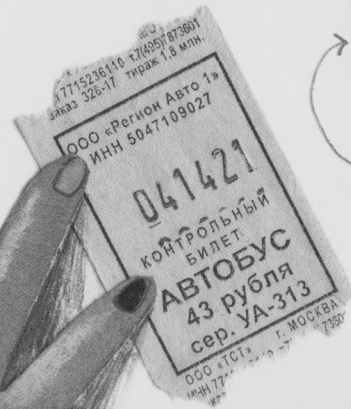 7715236110 т.7(495)7873601
заказ 326-17 тираж 1,8 млн.
ООО «Регион Авто 1»
ИНН 5047109027
041421
КОНТРОЛЬНЫЙ
БИЛЕТ
АВТОБУС
43 рубля
сер. УА-313
ООО «ТСТ» г. МОСКВА
ИНН